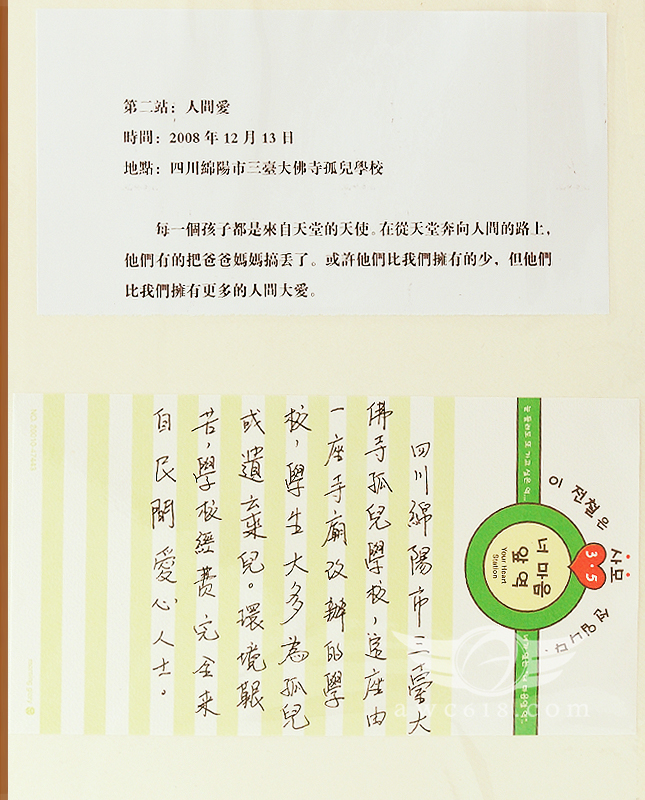 第二站：人間愛
時間：2008 年 12 月 13 日
地點：四川綿陽市三臺大佛寺孤兒學校
每一個孩子都是來自天堂的天使。在從天堂奔向人間的路上，
他們有的把爸爸媽媽搞丟了。或許他們比我們擁有的少，但他們
比我們擁有更多的人間大愛。
四川綿陽市三臺大
佛寺孤兒學校，這座由
一座寺廟改辦的學
校，學生大多為孤兒
或遺棄兒。環境艱
苦，學校經費完全來
自民間愛心人士。
이 전철은
사모
3·5
전입니다.
너 마음
앞 역
Your Heart
Station
awc618.com